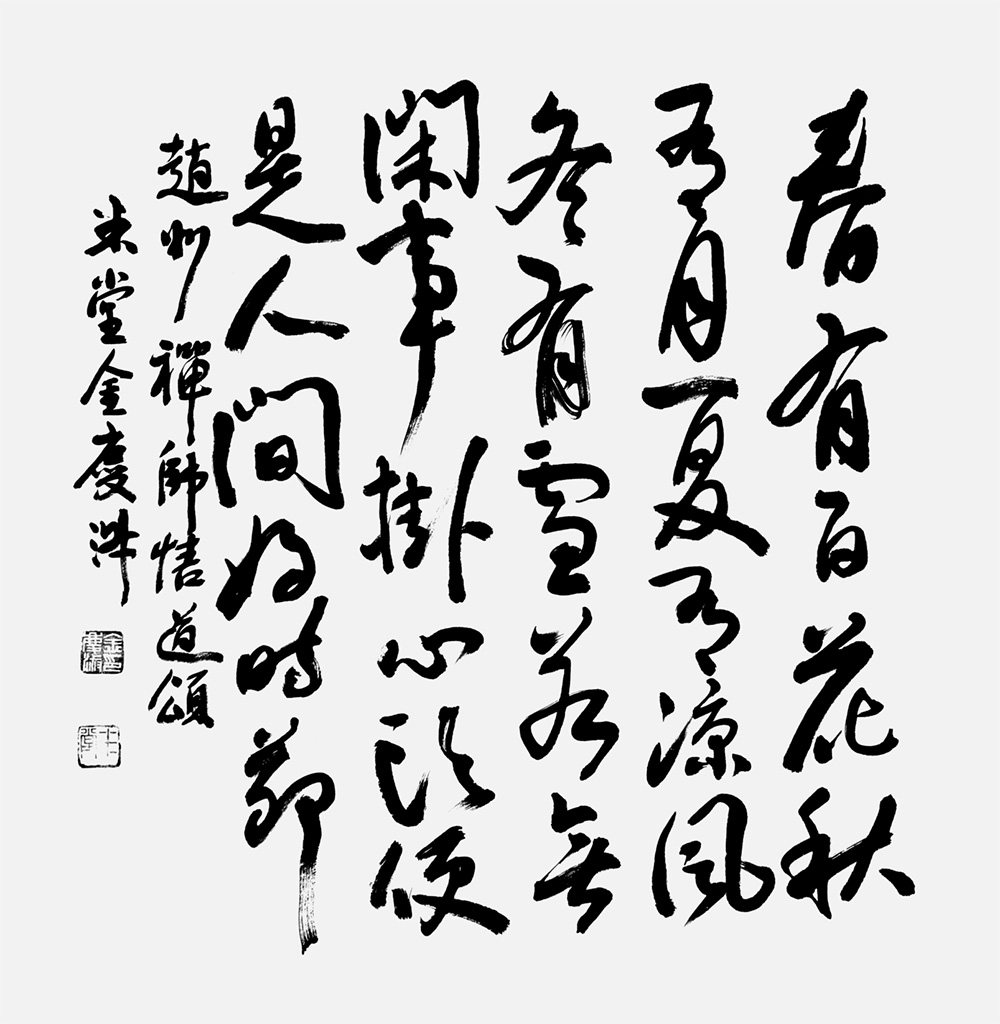 春有百花秋
有月夏有涼風
冬有雪若無
閑事掛心頭便
是人間好時節
趙州禪師悟道頌
米堂金慶淑